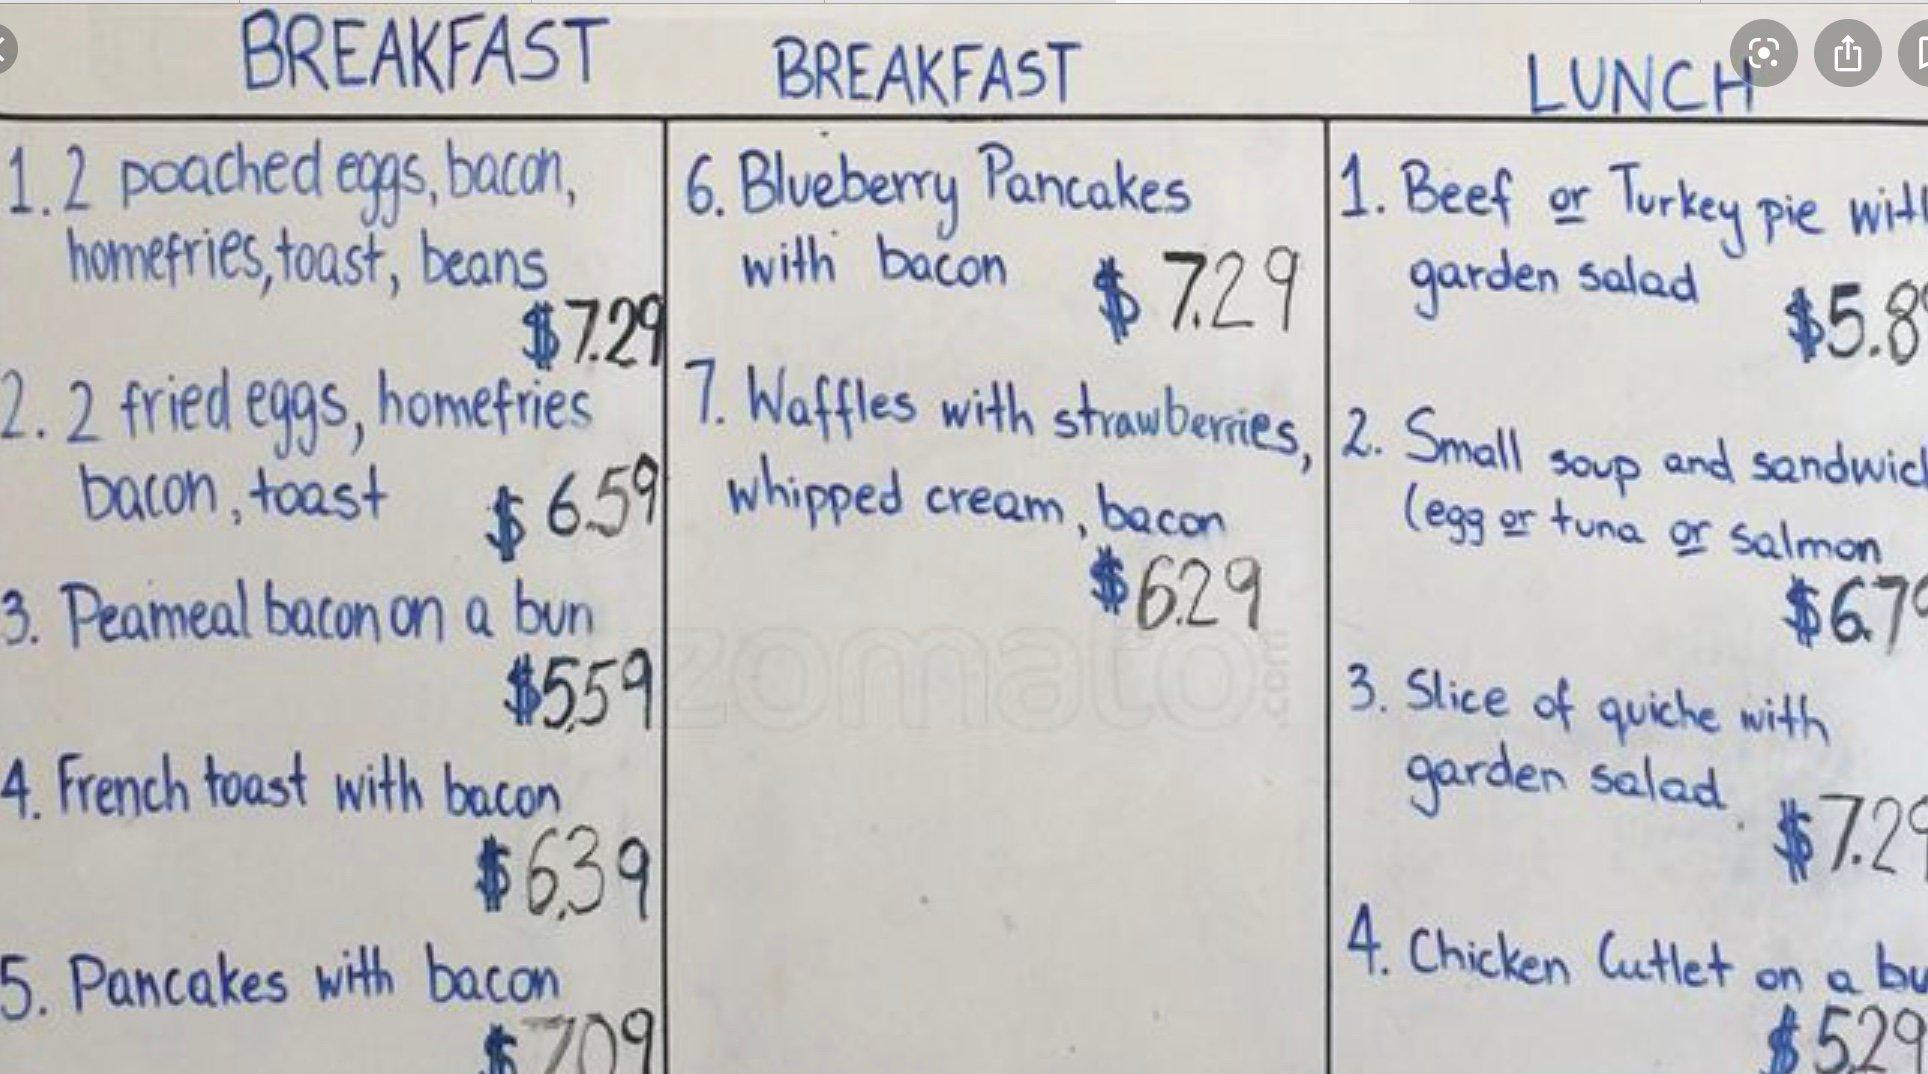 BREAKFAST
1. 2 poached eggs, bacon,
homefries, toast, beans
$7.29
2. 2 fried eggs, homefries
bacon, toast $6.59
3. Peameal bacon on a bun
$5.59
4. French toast with bacon
$6.39
5. Pancakes with bacon
$7.09
BREAKFAST
6. Blueberry Pancakes
with bacon $7.29
7. Waffles with strawberries,
whipped cream, bacon
$6.29
zomato.com
LUNCH
1. Beef or Turkey pie with
garden salad
$5.8
2. Small soup and sandwich
(egg or tuna or salmon
$6.79
3. Slice of quiche with
garden salad
$7.29
4. Chicken Cutlet on a bu
$5.29